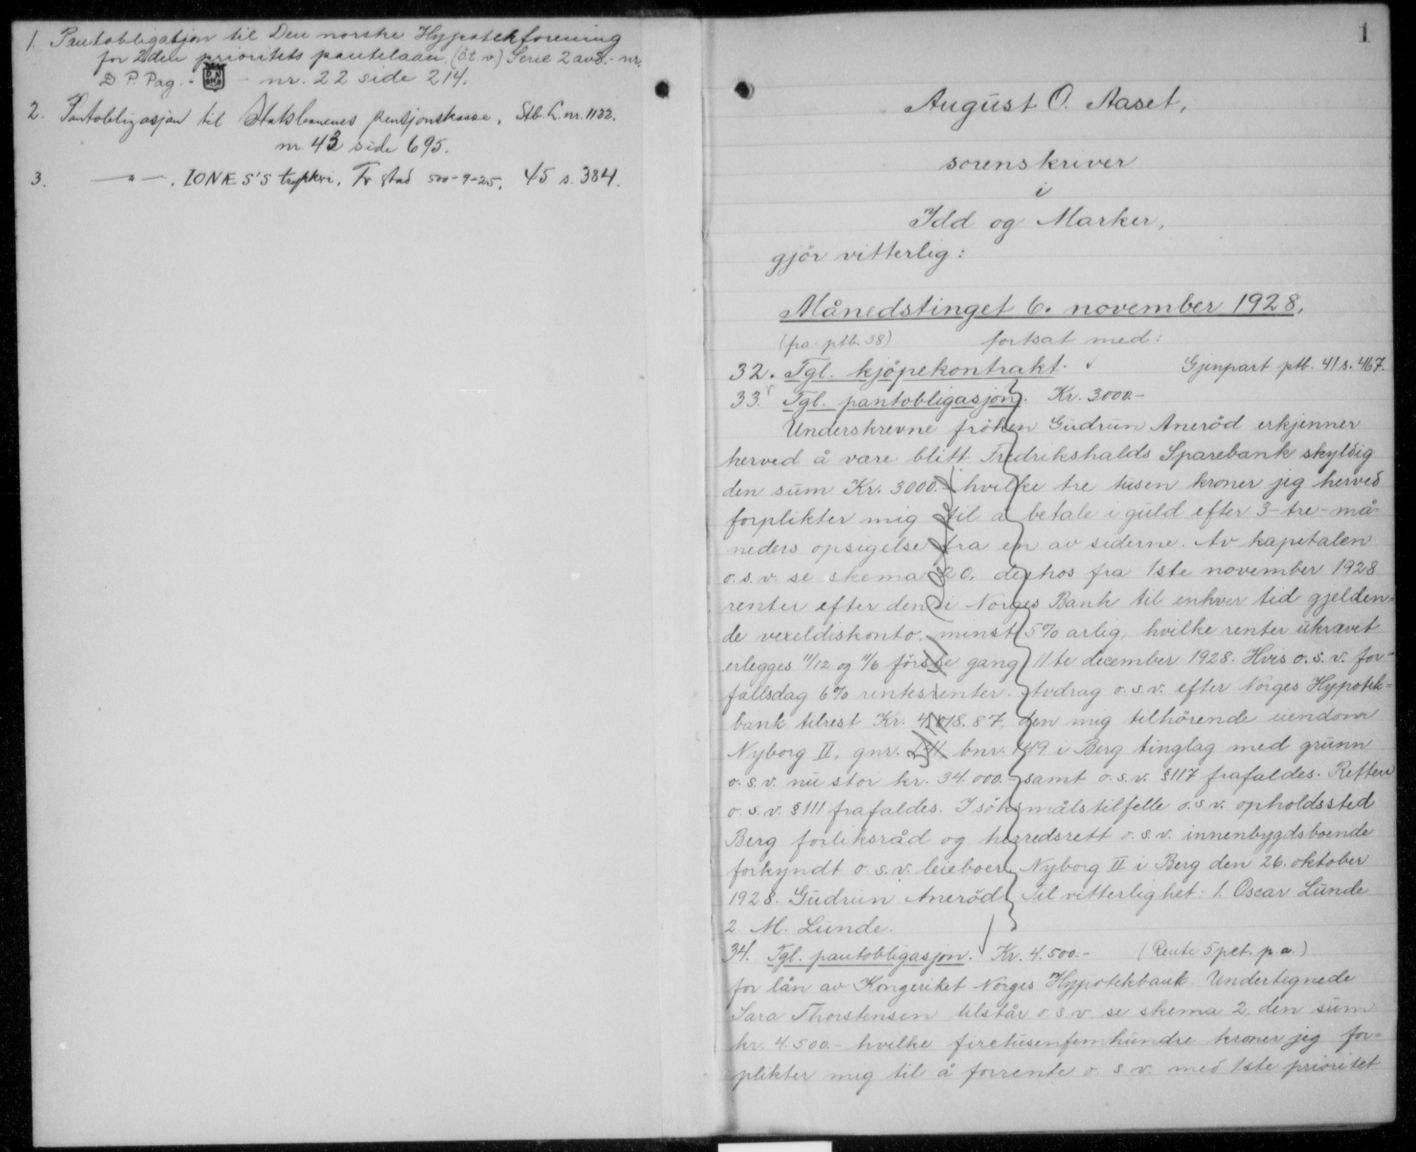 1. Pantobligasjon til Den norske Hypotekforening
for 2den prioritets pantelaan (o.t.v.) Serie 2 avd. - nr.
D. P. Pag. - - nr. 22 side 214.
2. Pantobligasjon til Statsbanenes pensjonskasse. Stb. L. nr. 1122.
nr. 43 side 695.
3. —"— . IONÆS'S trykkeri, Fr.stad 500-9-25. 45 s. 384.
1
August O. Aaset,
sorenskriver
i
Idd og Marker,
gjör vitterlig:
Månedstinget 6. november 1928,
(fra ptb. 38) fortsat med:
32. Tgl. kjöpekontrakt. Gjenpart ptb. 41 s. 467.
33. Tgl. pantobligasjon. Kr. 3000.-
Underskrevne fröken Gudrun Aneröd erkjenner
herved å være blitt Fredrikshalds Sparebank skyldig
den sum Kr. 3000.- hvilke tre tusen kroner jeg herved
forplikter mig til a betale i guld efter 3-tre-må-
neders opsigelse fra en av siderne. Av kapitalen
o.s.v. se skema 20. derhos fra 1ste november 1928
renter efter den i Norges Bank til enhver tid gjelden-
de vexeldiskonto, minst 5% arlig, hvilke renter ukrævet
erlegges 11/12 og 11/6 förste gang 11te december 1928. Hvis o.s.v. for-
fallsdag 6% rentesrenter. Avdrag o.s.v. efter Norges Hypotek-
bank tilrest Kr. 4818.87, den mig tilhörende eiendom
Nyborg II, gnr. bnr. 149 i Berg tinglag med grunn
o.s.v. nu stor kr. 34.000.- samt o.s.v. §117 frafaldes. Retten
o.s.v. §111 frafaldes. I söksmålstilfelle o.s.v. opholdssted
Berg forliksråd og herredsrett o.s.v. innenbygdsboende
forkyndt o.s.v. leieboer Nyborg II i Berg den 26. oktober
1928. Gudrun Aneröd. Til vitterlighet: 1. Oscar Lunde
2. M. Lunde.
34. Tgl. pantobligasjon. Kr. 4.500.- (Rente 5 pct. p.a.)
for lån av Kongeriket Norges Hypotekbank. Undertegnede
Sara Thorstensen tilstår o.s.v. se skema 2, den sum
kr. 4.500.- hvilke firetusenfemhundre kroner jeg for-
plikter mig til å forrente o.s.v. med 1ste prioritet